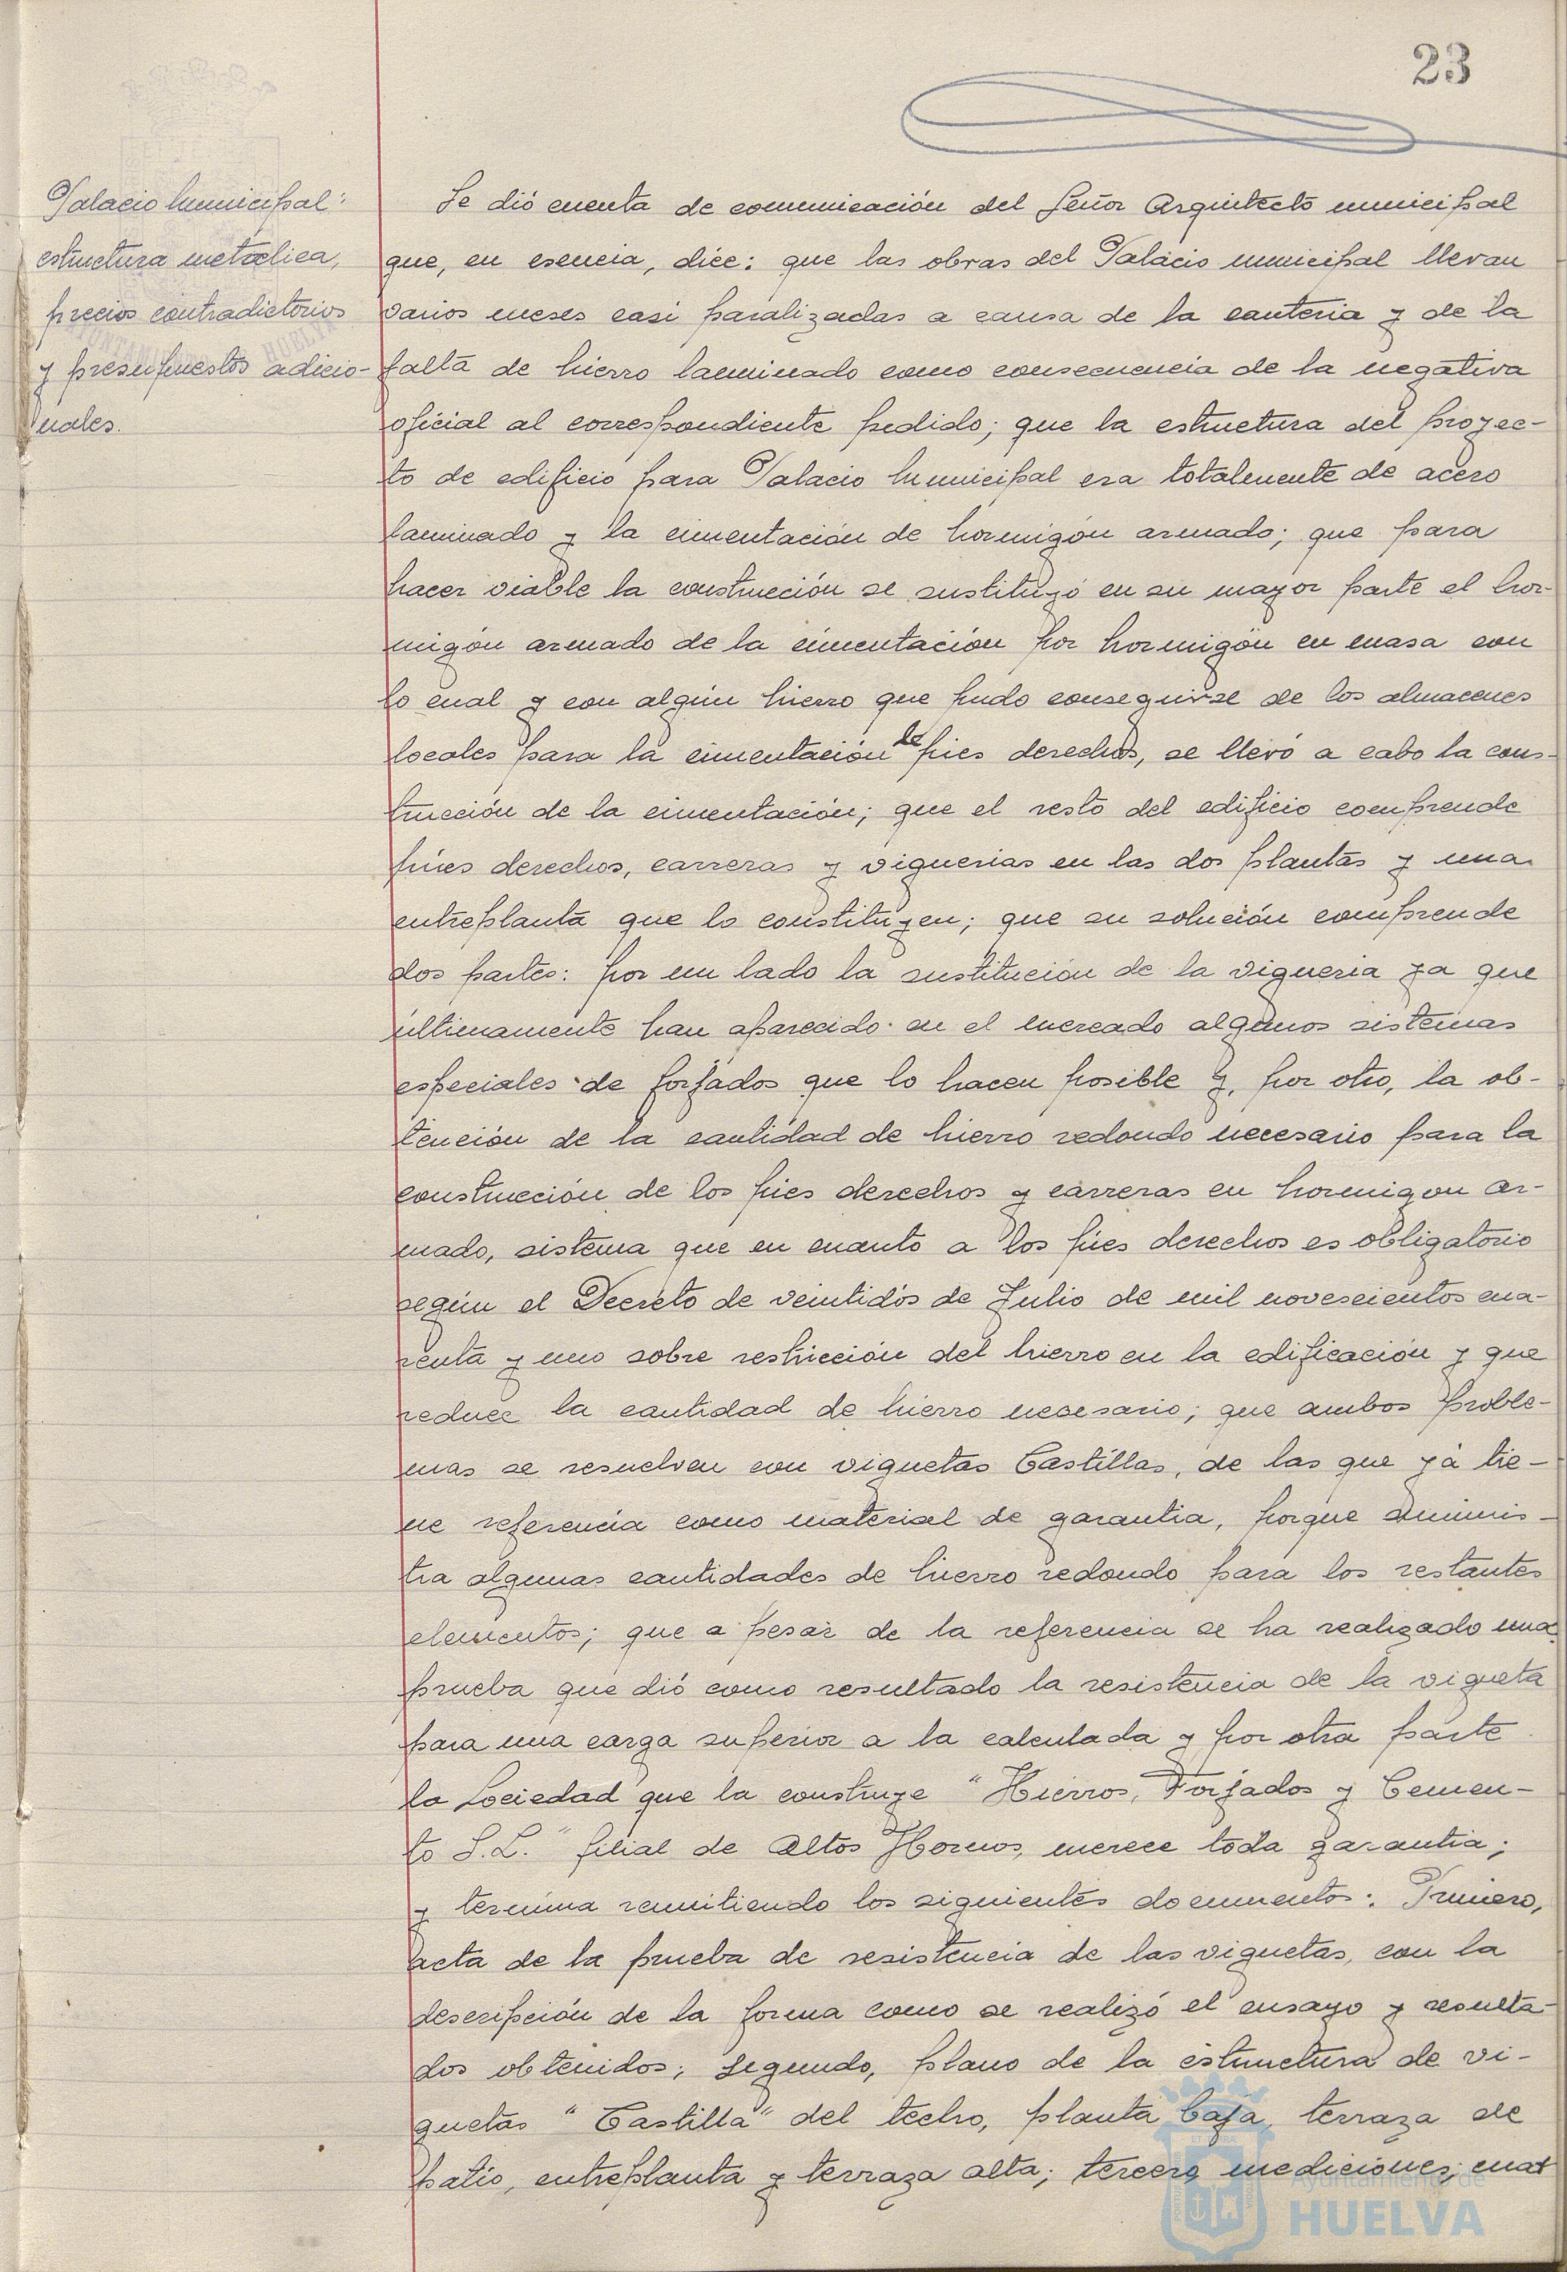 23
Palacio Municipal:
estructura metálica,
precios contradictorios
y presupuestos adicio-
nales.
Se dió cuenta de comunicación del Señor Arquitecto municipal
que, en esencia, dice: que las obras del Palacio municipal llevan
varios meses casi paralizadas a causa de la cantería y de la
falta de hierro laminado como consecuencia de la negativa
oficial al correspondiente pedido; que la estructura del proyec-
to de edificio para Palacio Municipal era totalmente de acero
laminado y la cimentación de hormigón armado; que para
hacer viable la construcción se sustituyó en su mayor parte el hor-
migón armado de la cimentación por hormigón en masa con
lo cual y con algún hierro que pudo conseguirse de los almacenes
locales para la cimentación de pies derechos, se llevó a cabo la cons-
trucción de la cimentación; que el resto del edificio comprende
piés derechos, carreras y viguerias en las dos plantas y una
entreplanta que lo constituyen; que su solución comprende
dos partes: por un lado la sustitución de la vigueria ya que
últimamente han aparecido en el mercado algunos sistemas
especiales de forjados que lo hacen posible y, por otro, la ob-
tención de la cantidad de hierro redondo necesario para la
construcción de los pies derechos y carreras en hormigon ar-
mado, sistema que en cuanto a los piés derechos es obligatorio
según el Decreto de veintidós de Julio de mil novescientos cua-
renta y uno sobre restricción del hierro en la edificación y que
reduce la cantidad de hierro necesario; que ambos proble-
mas se resuelven con viguetas Castillas, de las que yá tie-
ne referencia como material de garantia, porque suminis-
tra algunas cantidades de hierro redondo para los restantes
elementos; que a pesar de la referencia se ha realizado una
prueba que dió como resultado la resistencia de la vigueta
para una carga superior a la calculada y por otra parte
la Sociedad que la construye "Hierros, Forjados y Cemen-
to S.L." filial de Altos Hornos, merece toda garantia;
y termina remitiendo los siguientes documentos: Primero,
acta de la prueba de resistencia de las viguetas, con la
descripción de la forma como se realizó el ensayo y resulta-
dos obtenidos; segundo, plano de la estructura de vi-
guetas "Castilla" del techo, planta baja, terraza de
patio, entreplanta y terraza alta; tercero mediciones; cuar
Ayuntamiento de
HUELVA